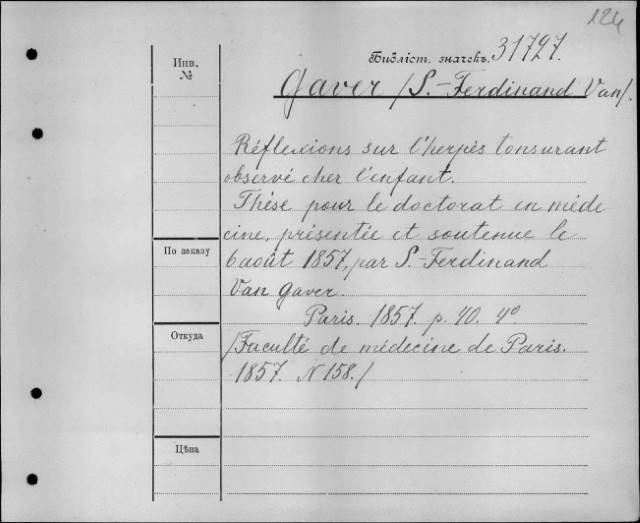 124
Библіот. значекъ. 31727.
Инв.
№
Gaver /S.-Ferdinand Van/.
Réflexions sur l'herpès tonsurant
observé cher l'enfant.
Thése pour le doctorat en méde
cine, présentée et soutenue le
6 août 1857, par S.-Ferdinand
Van Gaver.
Paris. 1857. p. 40. 4°
/Faculté de médecine de Paris.
1857. N 158./
По заказу
Откуда
Цѣна